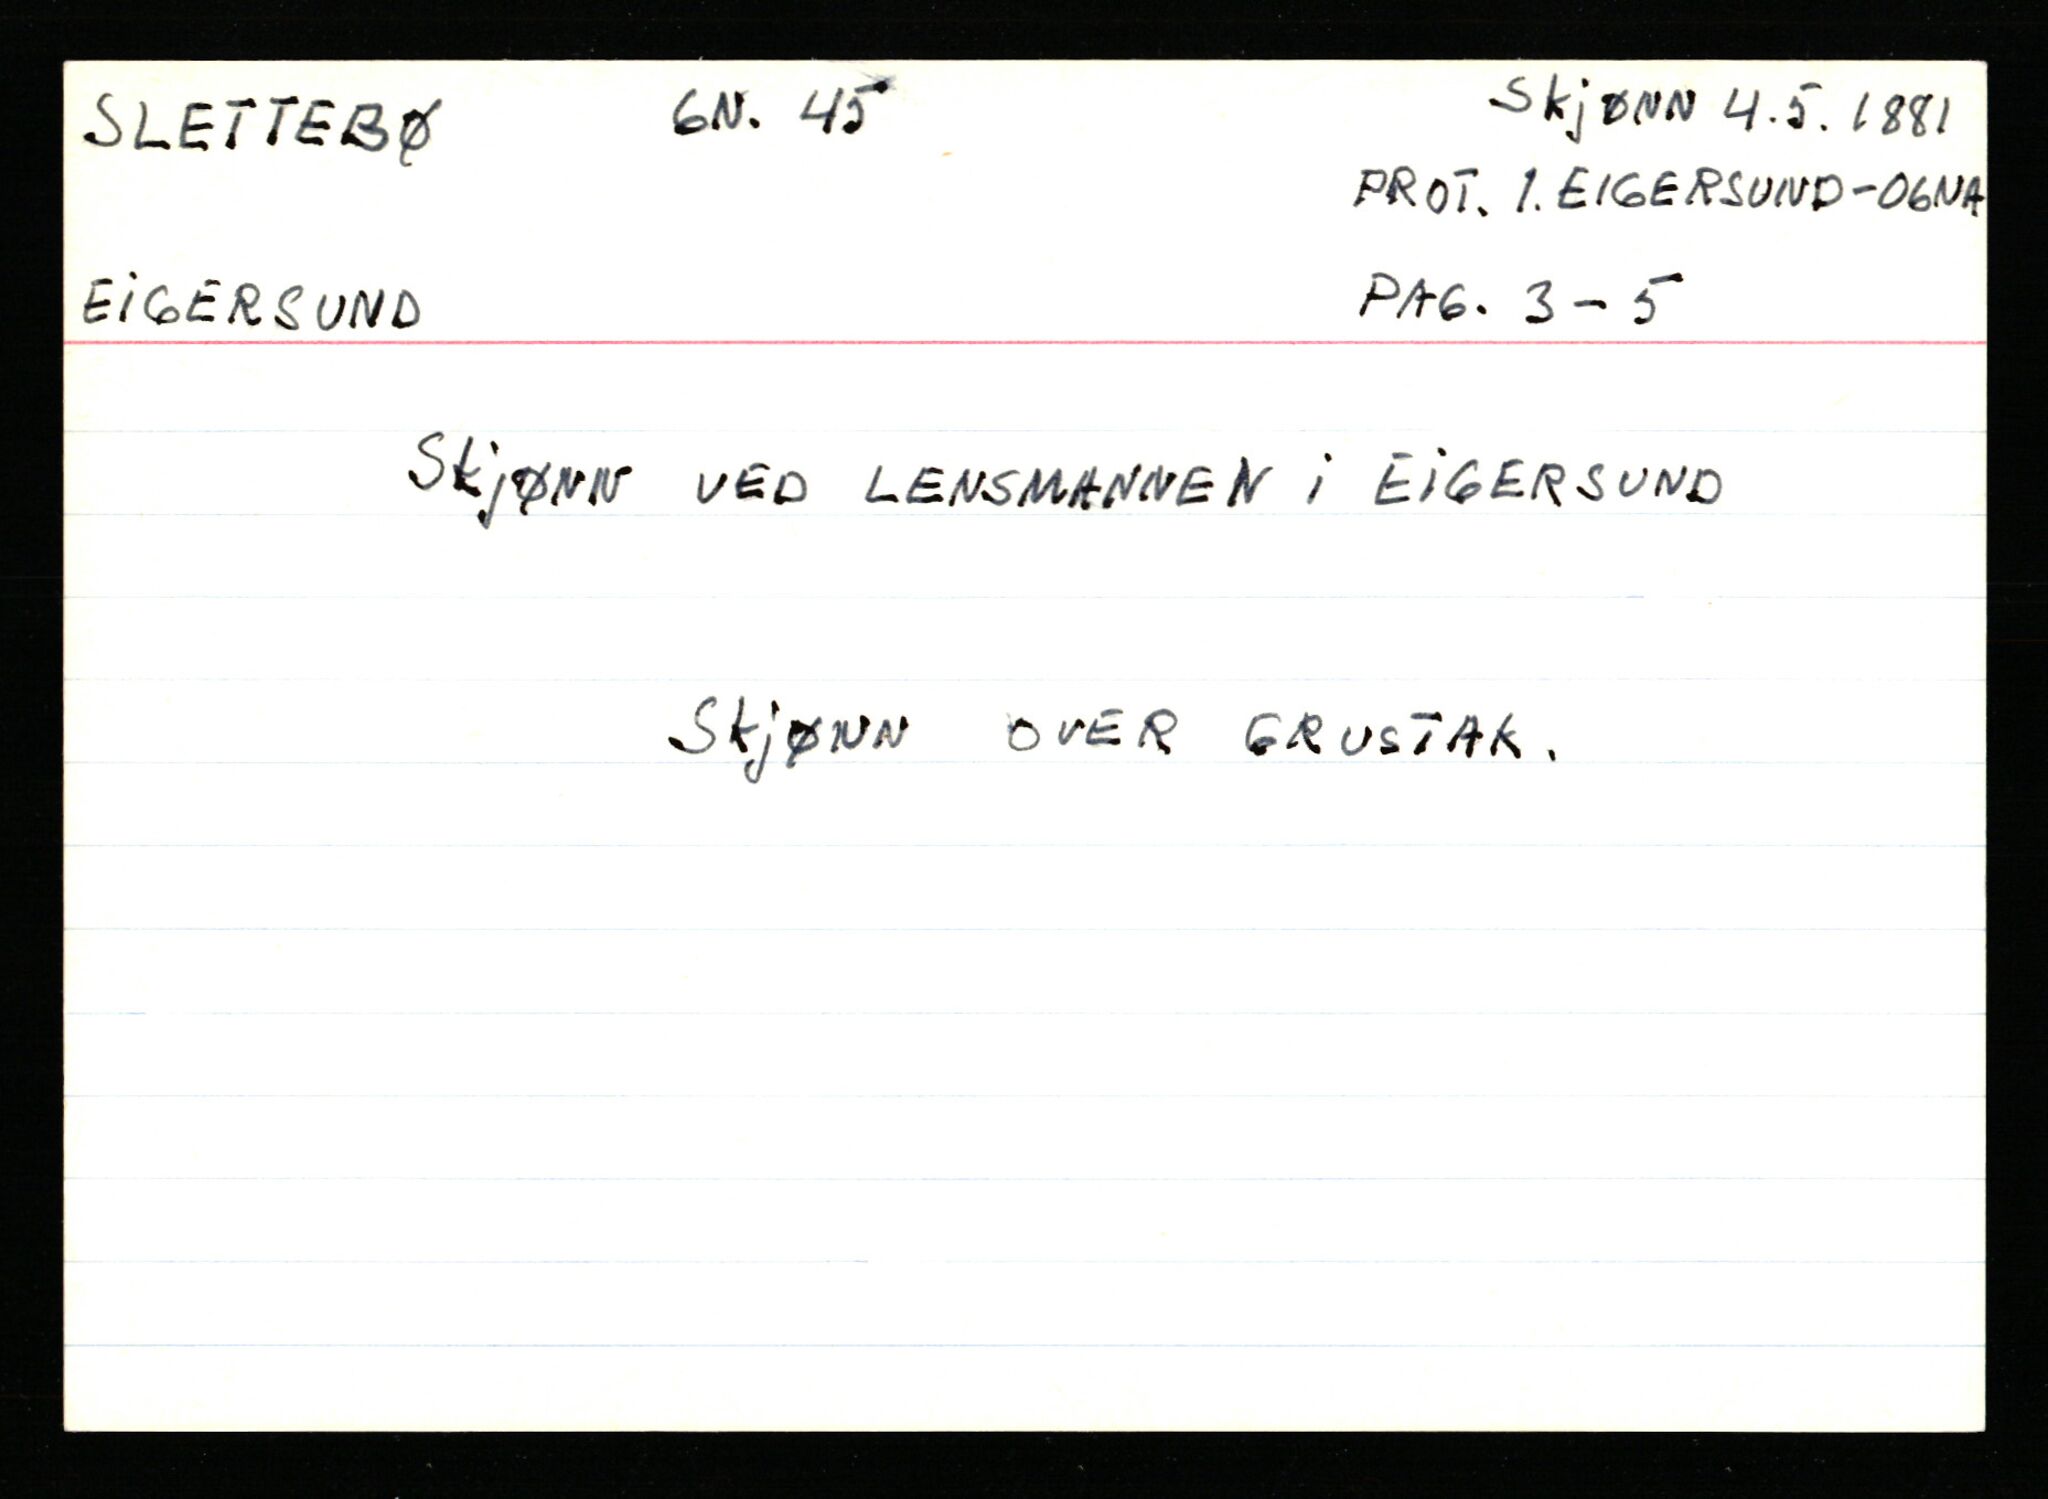 SLETTEBØ GN. 45 Skjønn 4.5.1881
PROT. 1. EIGERSUND-OGNA
EIGERSUND PAG. 3-5
Skjønn VED LENSMANNEN i EIGERSUND
Skjønn OVER GRUSTAK.